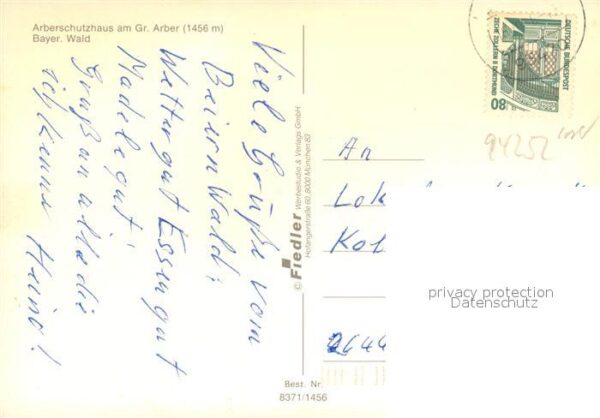 Arberschutzhaus am Gr. Arber (1456 m)
Bayer. Wald
Viele Grüße vom
Beiern Wald:
Wetter gut Essen gut
Madele gut!
Gruß an alle die
ich kenne Heino!
© Fiedler Werbestudio & Verlags GmbH
Hofangerstraße 60, 8000 München 83
DEUTSCHE BUNDESPOST
ZECHE ZOLLERN II DORTMUND
80
94252
An
Lok
Kol
2644
privacy protection
Datenschutz
Best. Nr.
8371/1456